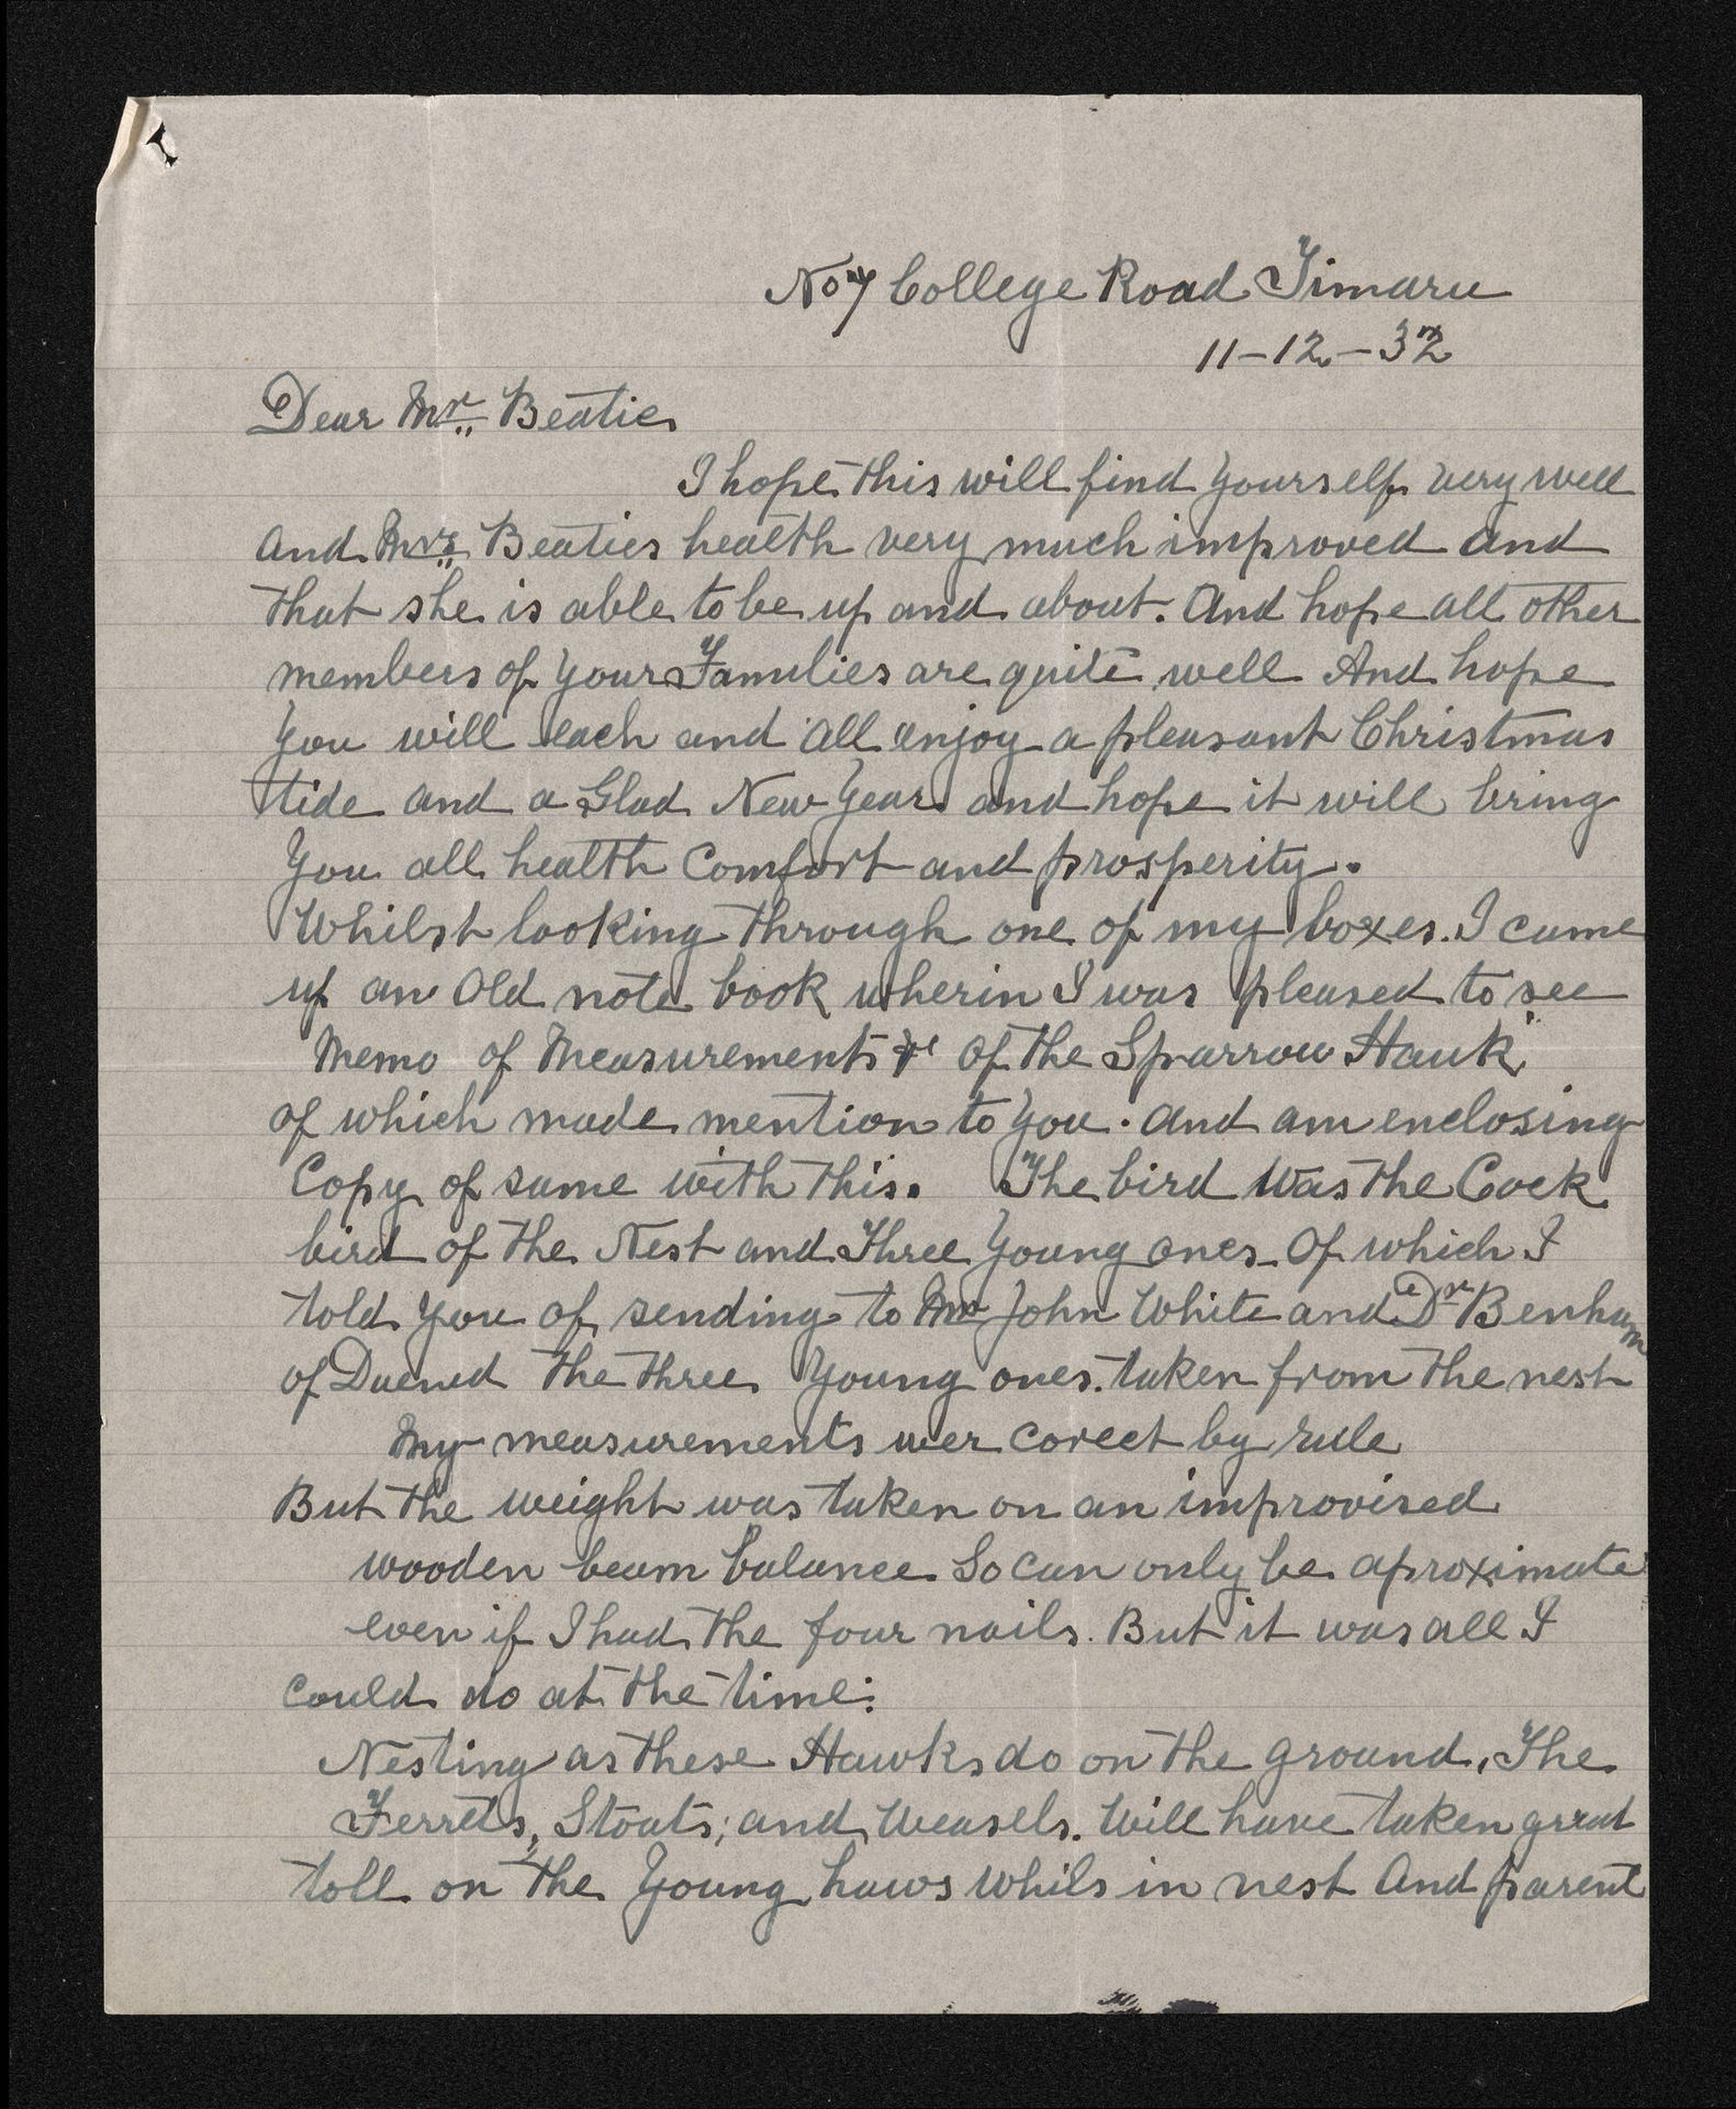 No 7 College Road Timaru
11-12-32
Dear Mr. Beatie
I hope this will find yourself very well
and Mrs. Beaties health very much improved and
that she is able to be up and about. And hope all other
members of your Families are quite well And hope
you will each and all enjoy a pleasant Christmas
tide and a Glad New Year and hope it will bring
You all health Comfort and prosperity.
Whilst looking through one of my boxes. I came
up an Old note book wherin I was pleased to see
Memo of Measurements &c of the Sparrow Hauk
of which made mention to you. and am enclosing
Copy of same with this. The bird Was the Cock
bird of the Nest and Three Young ones. Of which I
told you of sending to Mr John White and Dr Benham
of Duened the three Young ones. taken from the nest
My measurements wer corect by rule
But the weight was taken on an improvised
wooden beam balance. So can only be aproximate
even if I had the four nails. But it was all I
could do at the time:
Nesting as these Hawks do on the ground, The
Ferrets, Stoats; and Weasels. Will have taken great
toll on the Young haws whils in nest And parent